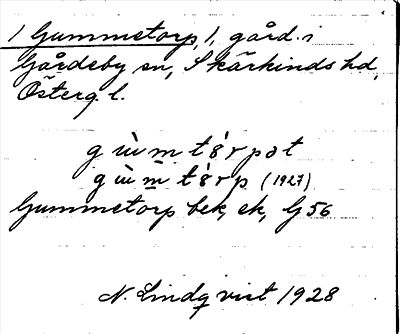 1 Gummetorp, 1, gård i
Gårdeby sn, Skärkinds hd,
Österg. l.
gùm̀ tɞ́rpət
gùm̲ tɞ́rp (1927)
Gummetorp bek, ek, G 56
N. Lindqvist 1928